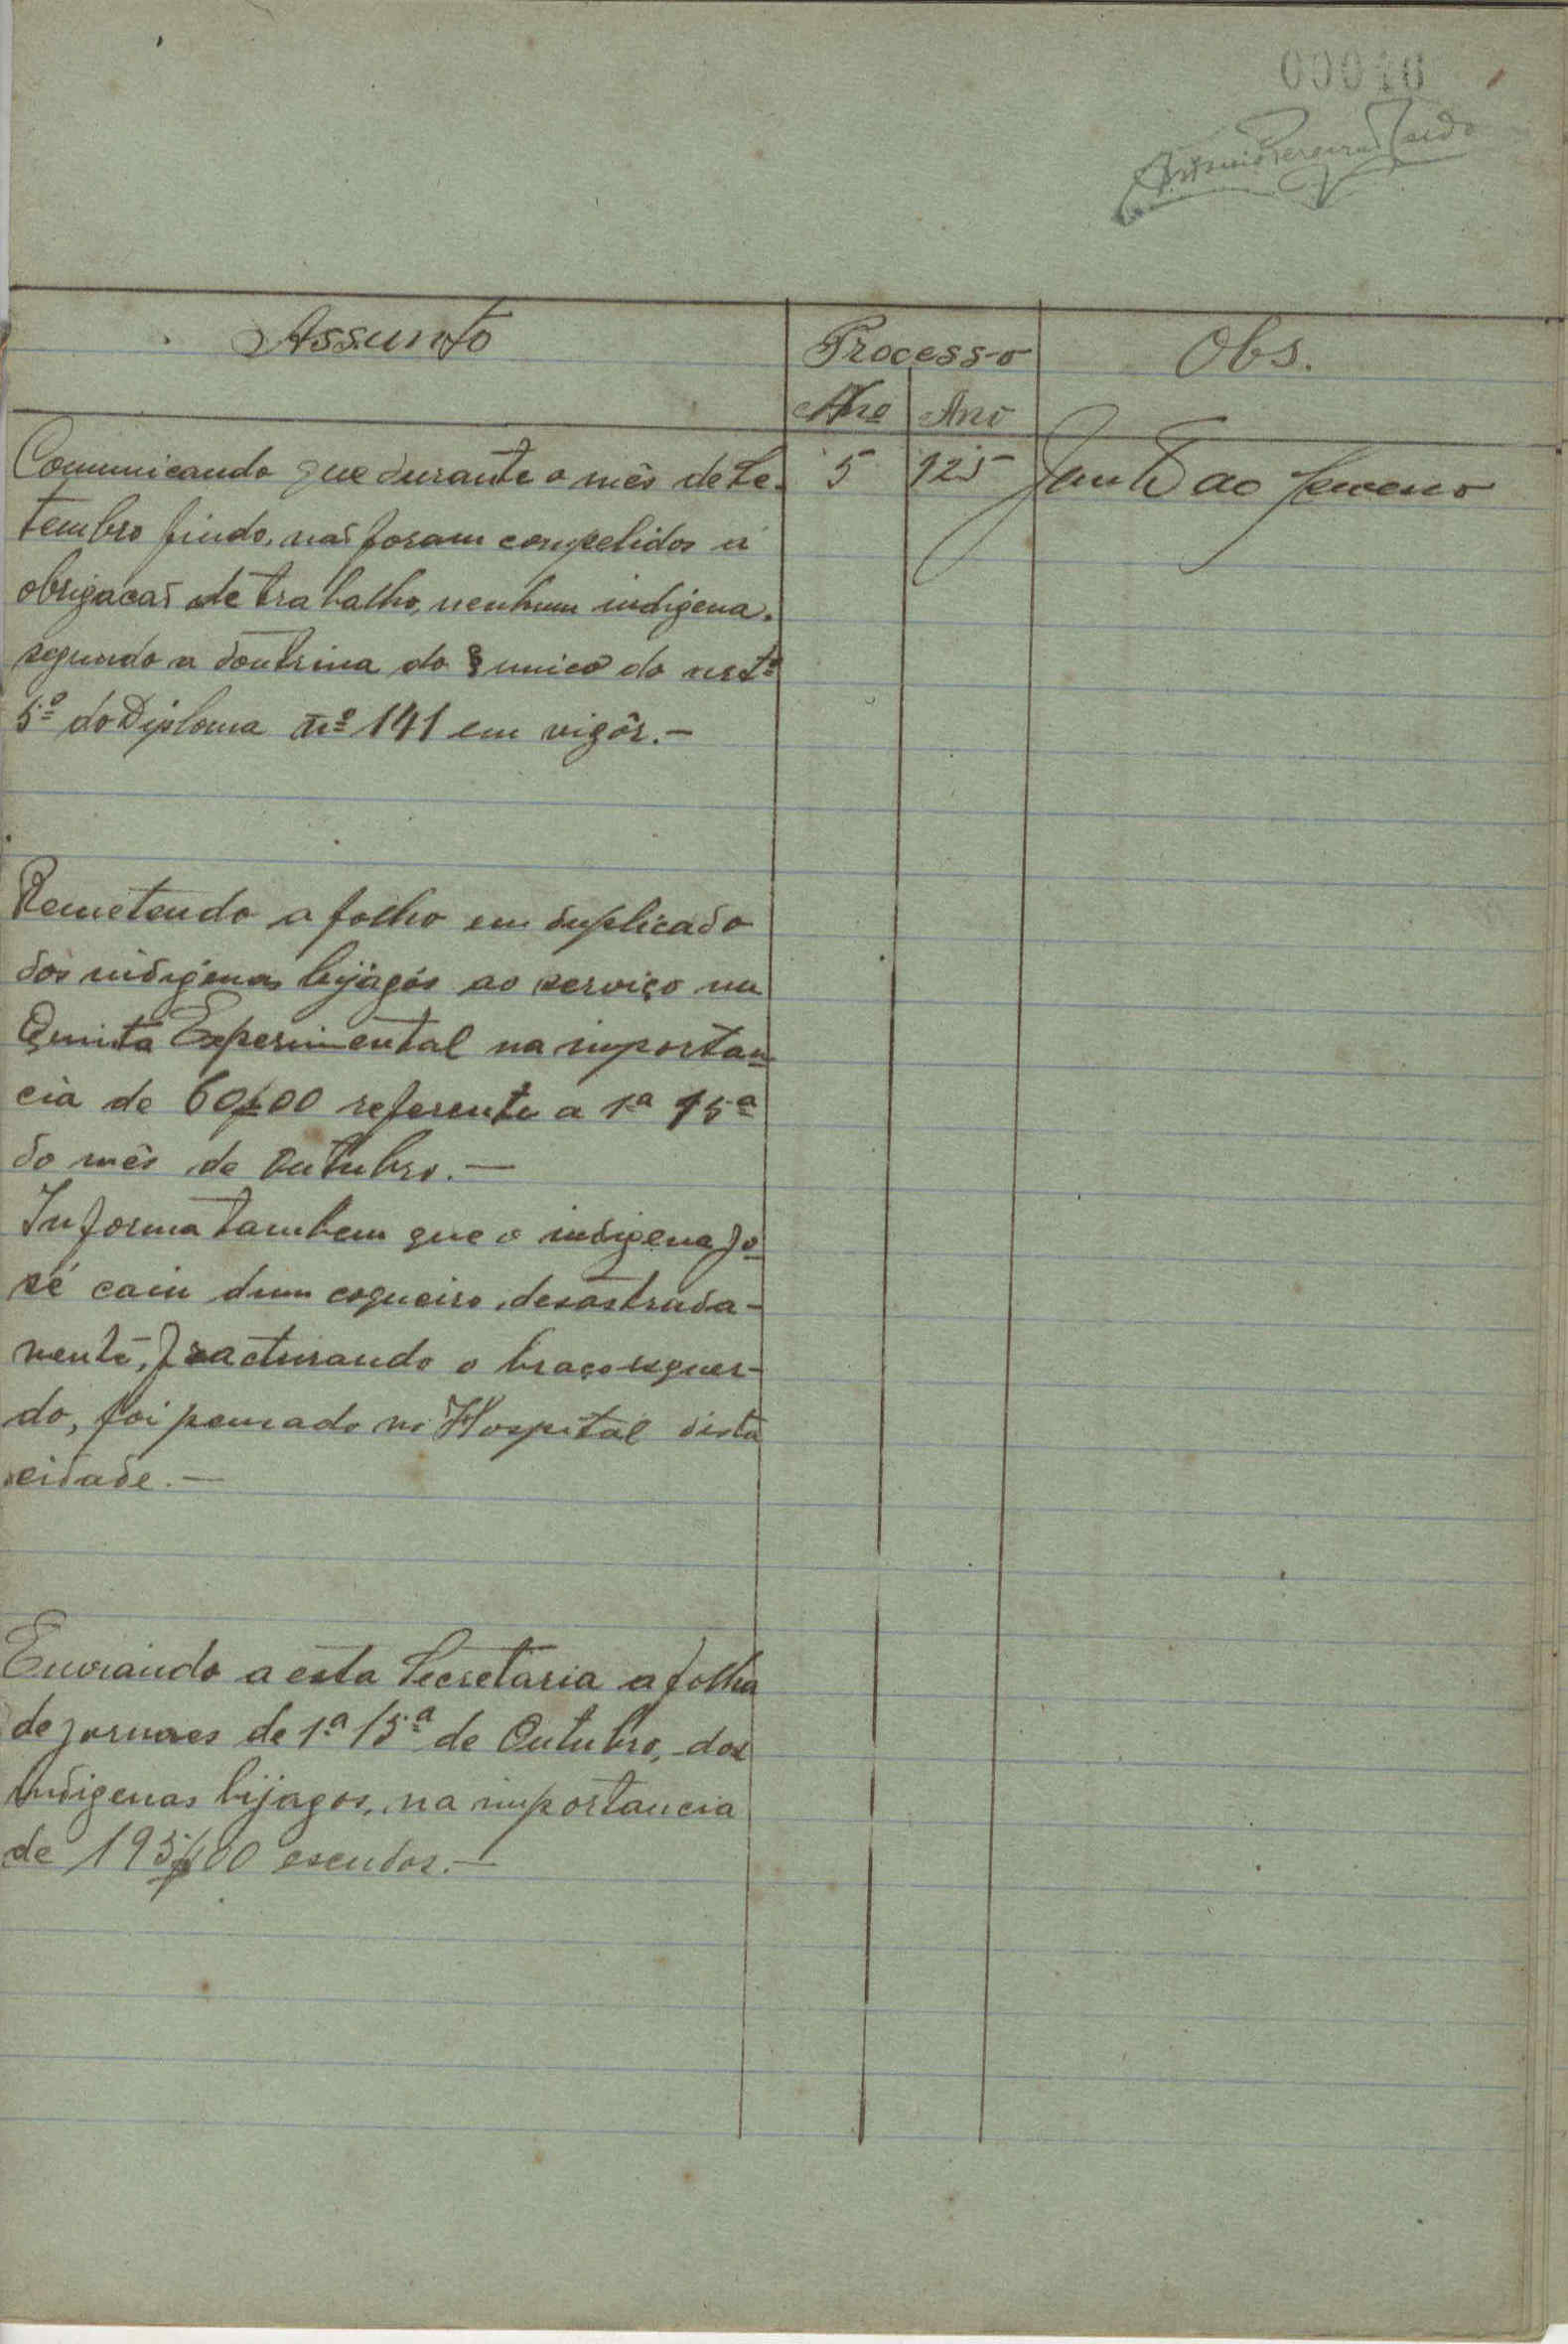 00010
Antonio Pereira
Assunto
Processo
Obs.
Nº Ano
Comunicando que durante o mês de Se-
tembro findo, não foram compelidos á
obrigacaõ de trabalho, nenhum indigena.
segundo a doutrina do § unico do artº
5º do Diploma nº 141 em vigôr.—
5 925 Junto ao
Remetendo a folha em duplicado
dos indigenas bijagós ao serviço na
Quinta Experimental na importan
cia de 60$00 referente a 1ª 15ª
do mês de Outubro.—
Informa tambem que o indigena Jo
sé caiu dum coqueiro, desastrada-
mente, fracturando o braço esquer-
do, foi pensado no Hospital désta
cidade.—
Enviando a esta Secretaria a folha
de jornaes de 1ª 15ª de Outubro, dos
indigenas bijagos, na importancia
de 195$00 escudos.—